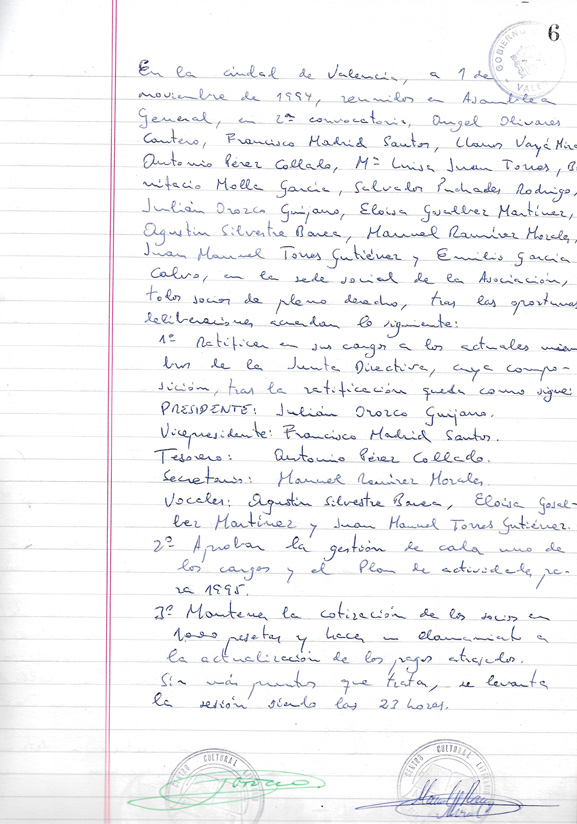 6
GOBIERNO
VALE
En la ciudad de Valencia, a 1 de
noviembre de 1994, reunidos en Asamblea
General, en 2ª convocatoria, Angel Olivares
Cantero, Francisco Madrid Santos, Llanos Vayá Mira
Antonio Pérez Collado, Mª Luisa Juan Torres, B
nifacio Molla García, Salvador Puchades Rodrigo,
Julián Orozco Guijano, Eloisa Gualbez Martínez,
Agustín Silvestre Barea, Manuel Ramírez Morales,
Juan Manuel Torres Gutiérrez y Emilio García
Calvo, en la sede social de la Asociación,
todos socios de pleno derecho, tras las oportunas
deliberaciones acuerdan lo siguiente:
1º Ratificar en sus cargos a los actuales miem
bros de la Junta Directiva, cuya compo-
sición, tras la ratificación queda como sigue:
PRESIDENTE: Julián Orozco Guijano.
Vicepresidente: Francisco Madrid Santos.
Tesorero: Antonio Pérez Collado.
Secretario: Manuel Ramírez Morales.
Vocales: Agustín Silvestre Barea, Eloísa Gosal-
bez Martínez y Juan Manuel Torres Gutiérrez.
2º Aprobar la gestión de cada uno de
los cargos y el Plan de actividades pa-
ra 1995.
3º Mantener la cotización de los socios en
1000 pesetas y hacer un llamamiento a
la actualización de los pagos atrasados.
Sin más puntos que tratar, se levanta
la sesión siendo las 23 horas.
CENTRO CULTURAL
CENTRO CULTURAL
Orozco